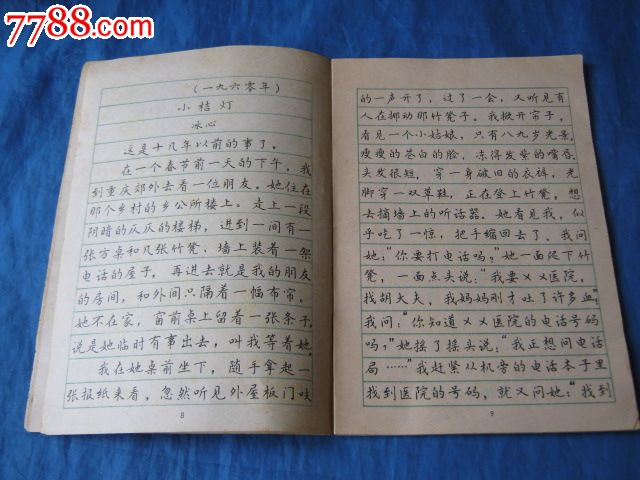 7788.com
(一九六零年)
小桔灯
冰心
这是十几年以前的事了。
在一个春节前一天的下午，我
到重庆郊外去看一位朋友。她住在
那个乡村的乡公所楼上。走上一段
阴暗的仄仄的楼梯，进到一间有一
张方桌和几张竹凳、墙上装着一架
电话的屋子，再进去就是我的朋友
的房间，和外间只隔着一幅布帘。
她不在家，窗前桌上留着一张条子，
说是她临时有事出去，叫我等着她。
我在她桌前坐下，随手拿起一
张报纸来看，忽然听见外屋板门吱
8
的一声开了，过了一会，又听见有
人在挪动那竹凳子。我掀开帘子，
看见一个小姑娘，只有八九岁光景，
瘦瘦的苍白的脸，冻得发紫的嘴唇，
头发很短，穿一身破旧的衣裤，光
脚穿一双草鞋，正在登上竹凳，想
去摘墙上的听话器。她看见我，似
乎吃了一惊，把手缩回去了。我问
她："你要打电话吗？"她一面爬下竹
凳，一面点头说："我要××医院，
找胡大夫，我妈妈刚才吐了许多血！"
我问："你知道××医院的电话号码
吗？"她摇了摇头说："我正想问电话
局……"我赶紧从机旁的电话本子里
找到医院的号码，就又问她："找到
9